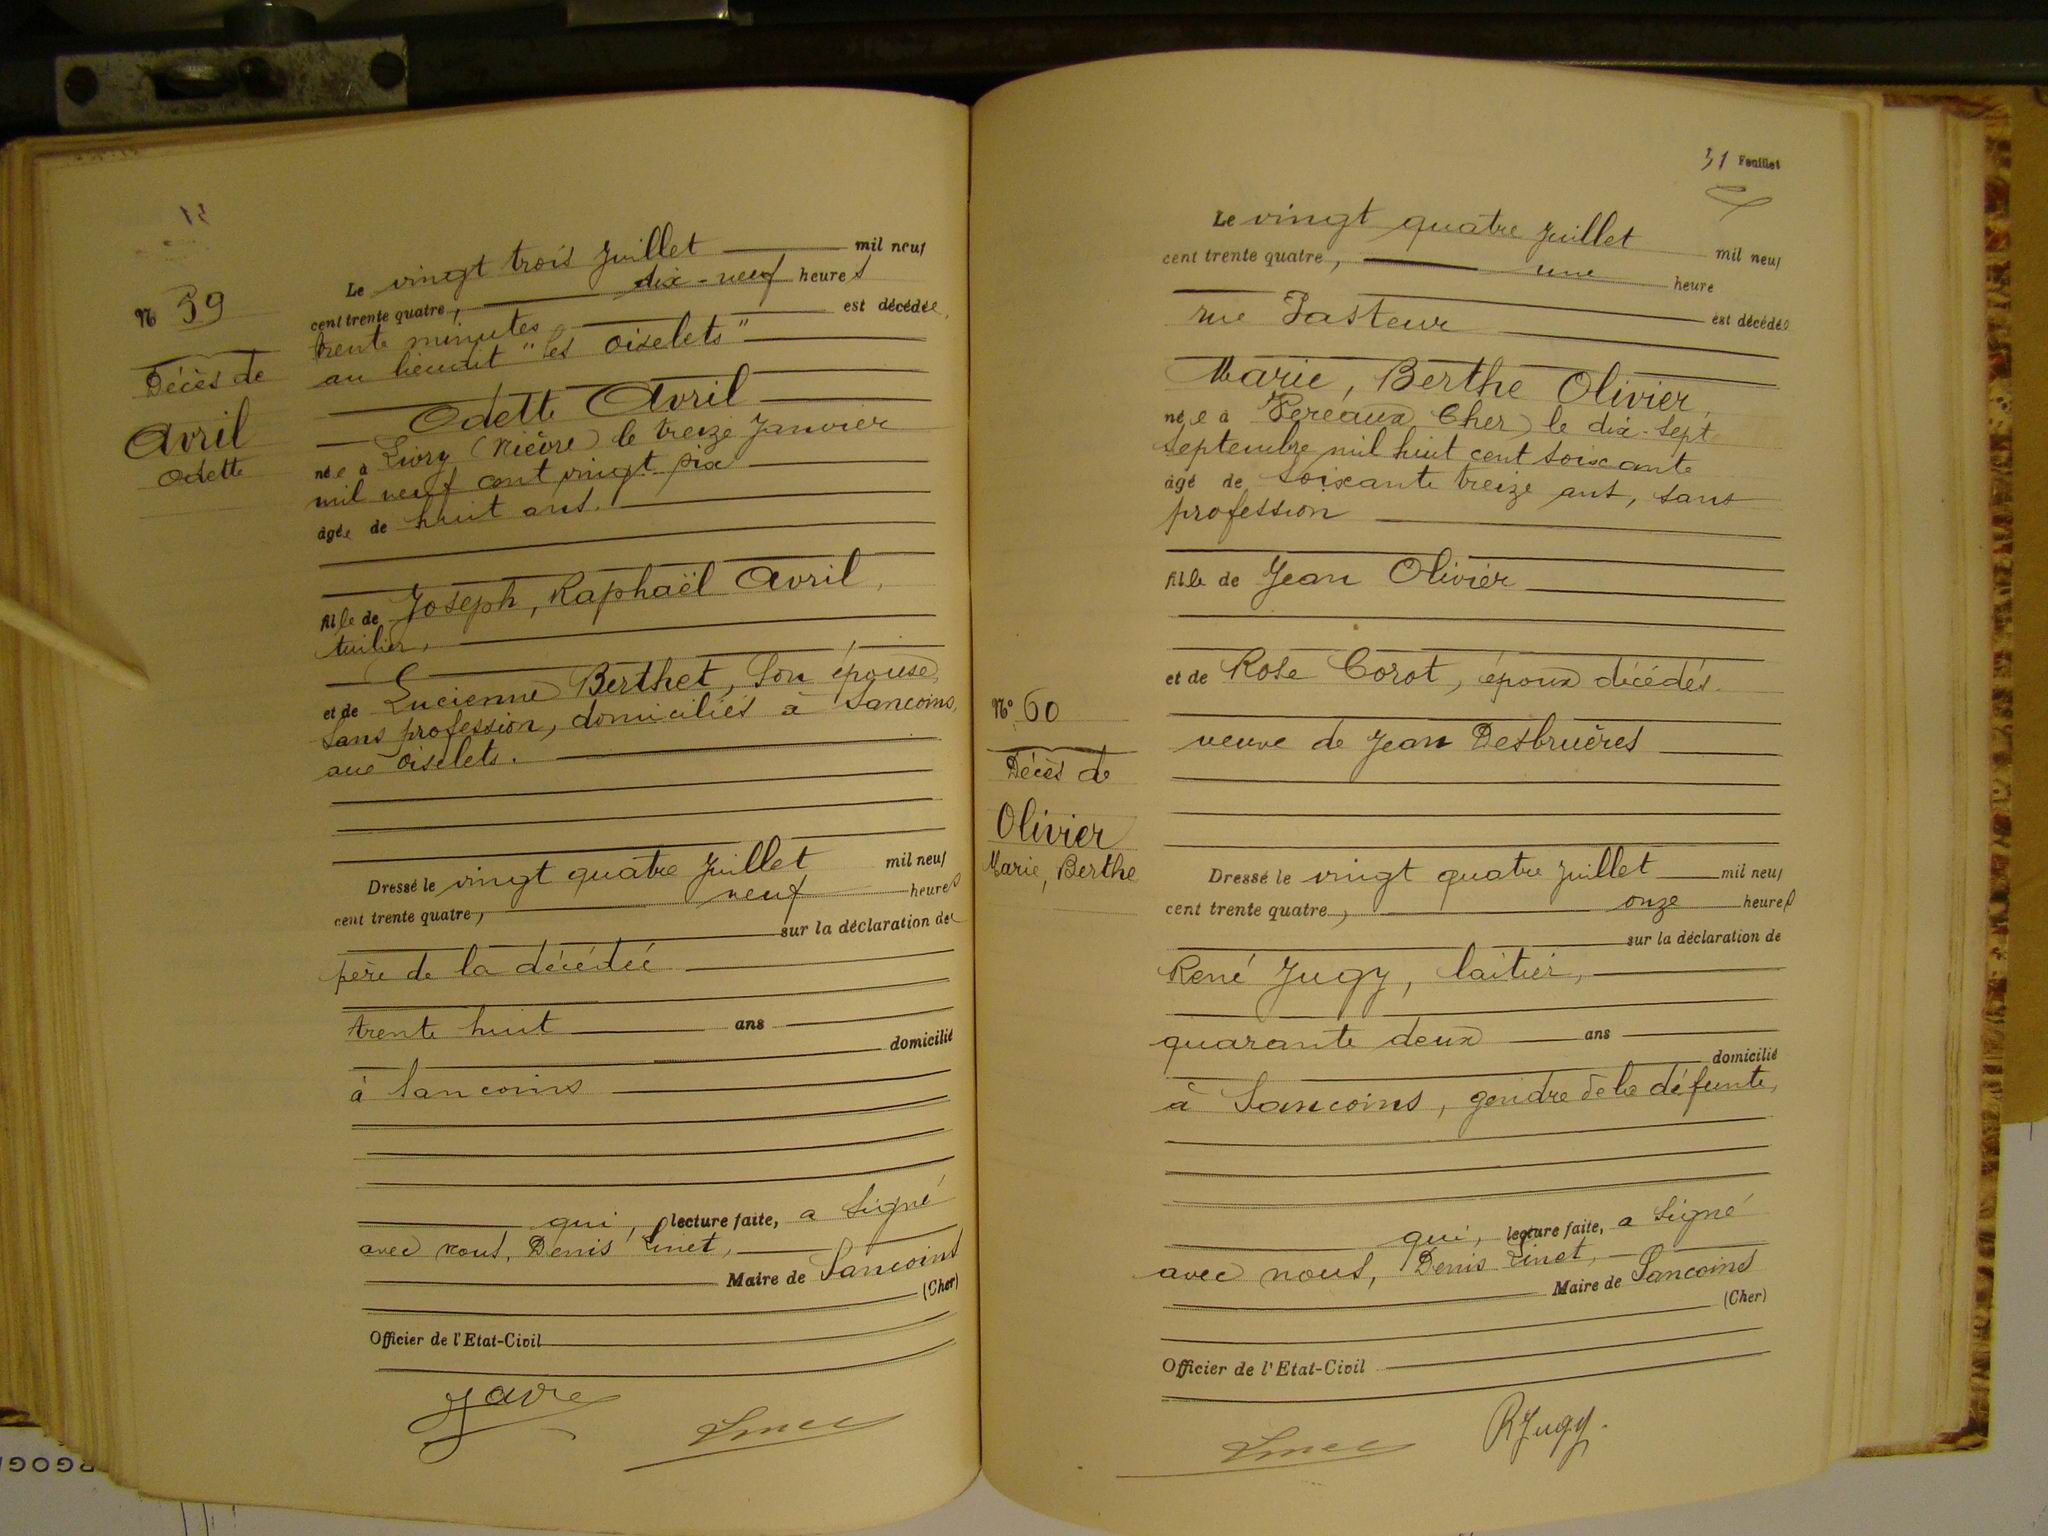 N° 59
Décès de
Avril
Odette
Le vingt trois Juillet mil neuf
cent trente quatre, dix-neuf heures
trente minutes est décédée,
au lieudit "les Oiselets"
Odette Avril
née à Livry (Nièvre) le treize Janvier
mil neuf cent vingt six
âgée de huit ans.
fille de Joseph, Raphaël Avril,
tuilier,
et de Lucienne Berthet, son épouse,
sans profession, domiciliés à Sancoins,
aux Oiselets.
Dressé le vingt quatre Juillet mil neuf
cent trente quatre, neuf heures
sur la déclaration du
père de la décédée
trente huit ans
domicilié
à Sancoins
qui, lecture faite, a signé
avec nous, Denis Linet,
Maire de Sancoins
(Cher)
Officier de l'Etat-Civil
31 Feuillet
N° 60
Décès de
Olivier
Marie, Berthe
Le vingt quatre Juillet mil neuf
cent trente quatre, une heure
rue Pasteur est décédée
Marie, Berthe Olivier,
née à Vereaux (Cher) le dix-sept
septembre mil huit cent soixante
âgé de soixante treize ans, sans
profession
fille de Jean Olivier
et de Rose Corot, époux décédés.
veuve de Jean Desbruères
Dressé le vingt quatre Juillet mil neuf
cent trente quatre, onze heures
sur la déclaration de
René Jugy, laitier,
quarante deux ans
domicilié
à Sancoins, gendre de la défunte,
qui, lecture faite, a signé
avec nous, Denis Linet,
Maire de Sancoins
(Cher)
Officier de l'Etat-Civil
RJugy.